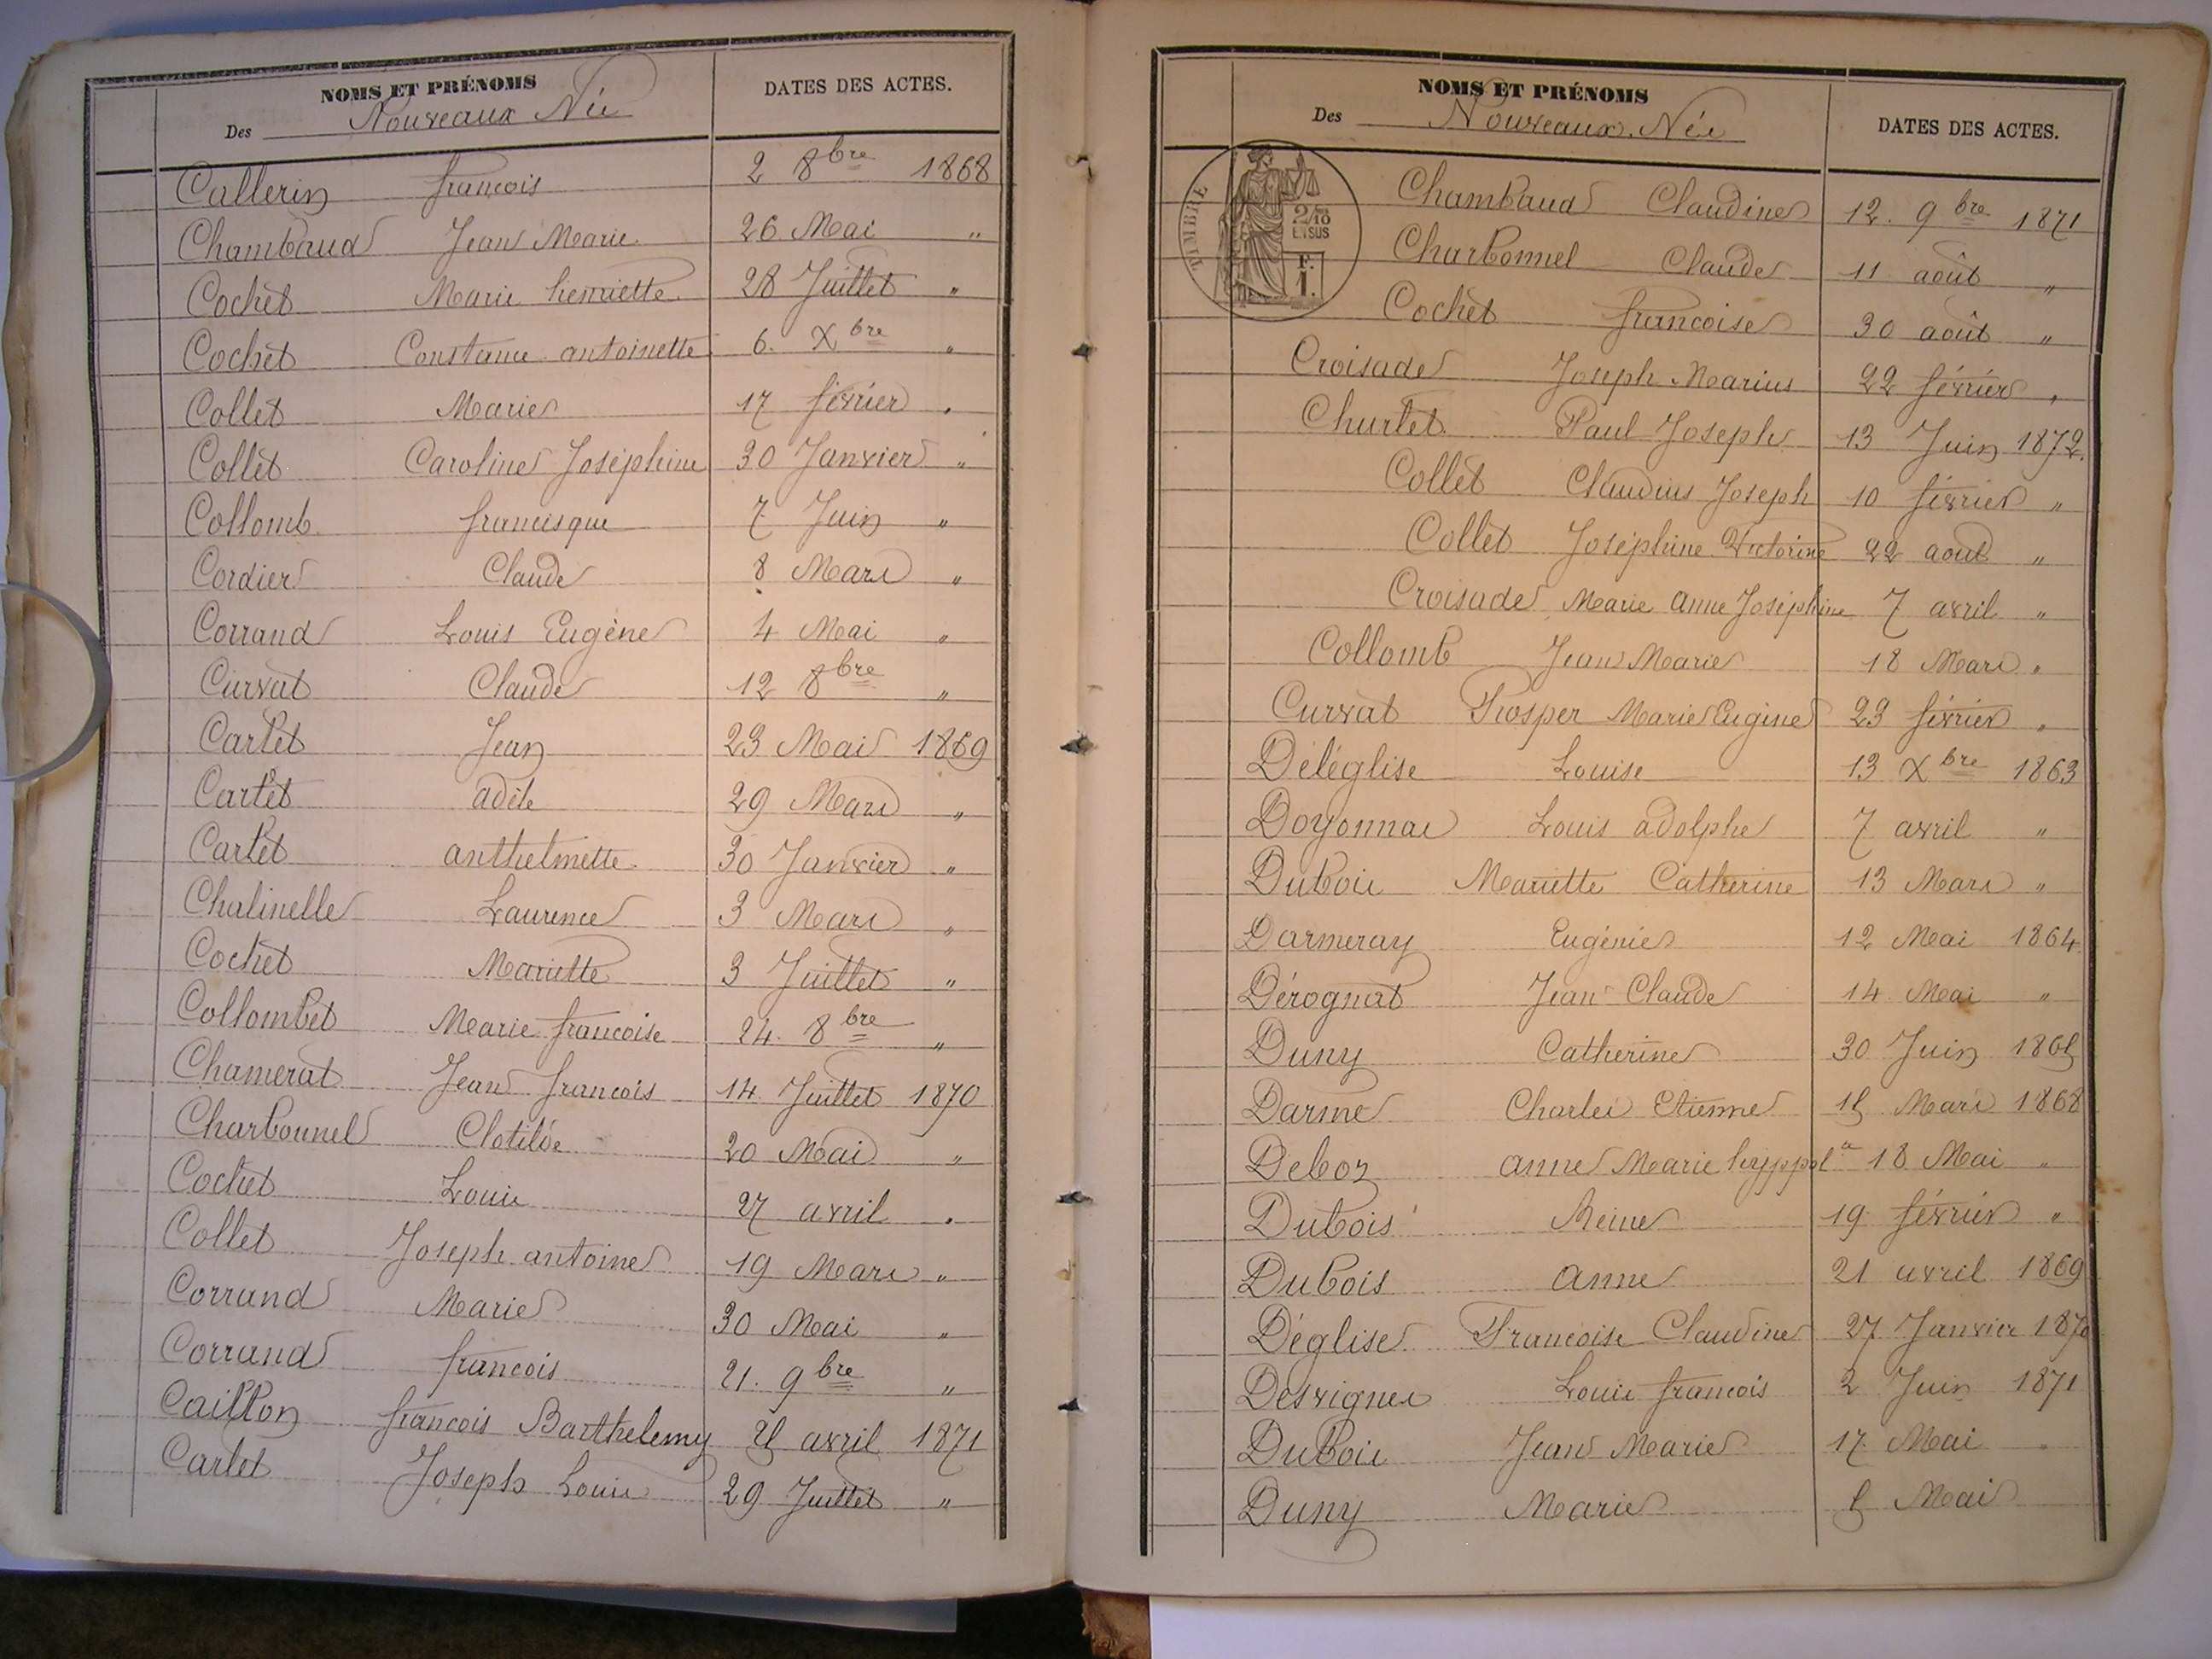 NOMS ET PRÉNOMS
DATES DES ACTES.
Des Nouveaux Nés
Callerin françois 2 8bre 1868
Chambaud Jean Marie 26 Mai "
Cochet Marie henriette 28 Juillet "
Cochet Constance antoinette 6. Xbre "
Collet Marie 17 février "
Collet Caroline Joséphine 30 Janvier "
Collomb francisque 7 Juin "
Cordier Claude 8 Mars "
Corrand Louis Eugène 4 Mai "
Curvat Claude 12 8bre "
Carlet Jean 23 Mai 1869
Carlet adèle 29 Mars "
Carlet anthelmette 30 Janvier "
Chalinelle Laurence 3 Mars "
Cochet Mariette 3 Juillet "
Collombet Marie françoise 24. 8bre "
Chamerat Jean françois 14. Juillet 1870
Charbonnel Clotilde 20 Mai "
Cochet Louis 27 avril "
Collet Joseph antoine 19 Mars "
Corrand Marie 30 Mai "
Corrand francois 21. 9bre "
Caillon francois Barthelemy avril 1871
Carlet Joseph Louis 29 Juillet "
NOMS ET PRÉNOMS
DATES DES ACTES.
Des Nouveaux Nés
TIMBRE
2/10
EN SUS
F.
1.
Chambaud Claudine 12. 9bre 1871
Charbonnel Claude 11 août "
Cochet francoise 30 août "
Croisade Joseph Marius 22 février "
Churlet Paul Joseph 13 Juin 1872.
Collet Claudius Joseph 10 février "
Collet Joséphine Victorine 22 aout "
Croisade Marie anne Joséphine 7 avril "
Collomb Jean Marie 18 Mars "
Curvat Prosper Marie Eugène 23 février "
Déléglise Louise 13 Xbre 1863
Doyonnas Louis adolphe 7 avril "
Dubois Mariette Catherine 13 Mars "
Darmeray Eugénie 12 Mai 1864
Dérognat Jean Claude 14. Mai "
Duny Catherine 30 Juin 1865
Darme Charles Etienne 15 Mars 1868
Deboz anne Marie hyppolte 18 Mai "
Dubois Reine 19 février "
Dubois anne 21 avril 1869
Déglise Francoise Claudine 27 Janvier 1870
Desvignes Louis francois 2 Juin 1871
Dubois Jean Marie 17 Mai "
Duny Marie 5 Mai